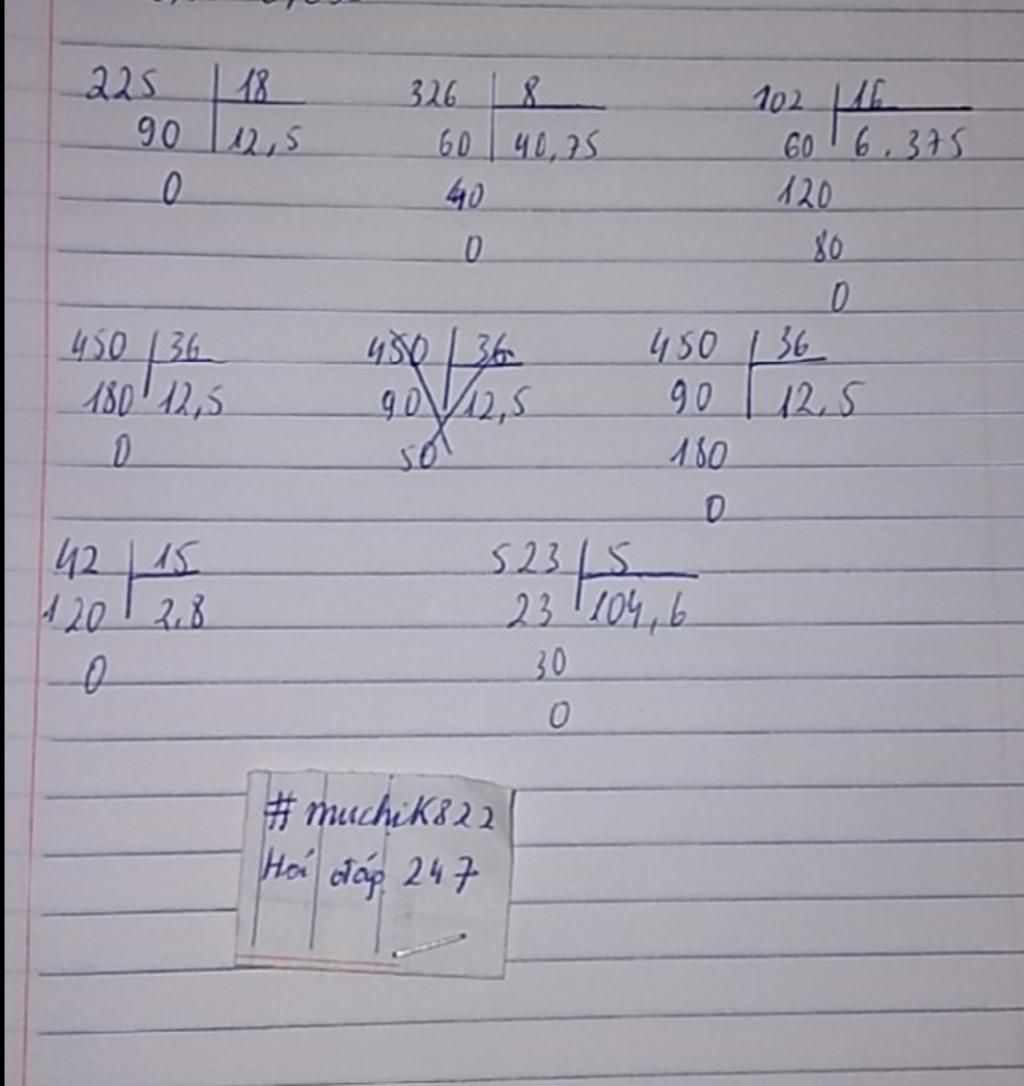 225 18 326 8 102 16
90 12,5 60 40,75 60 6.375
0 40 120
0 80
0
450 36 450 36 450 36
180 12,5 90 12,5 90 12,5
0 50 180
0
42 15 523 5
120 2,8 23 104,6
0 30
0
#muchiK822
Hỏi đáp 247